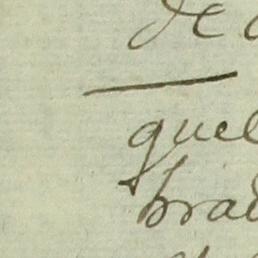 de
quel
brad